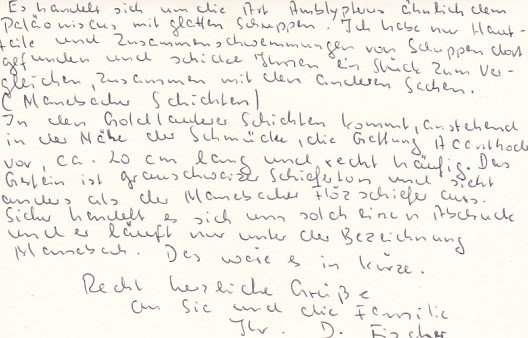 Es handelt sich um die Art Amblypterus ähnlich dem
Paläoniscus mit glatten Schuppen. Ich habe nur Haut-
teile und Zusammenschwemmungen von Schuppen dort
gefunden und schicke Ihnen ein Stück zum Ver-
gleichen, zusammen mit den anderen Sachen.
(Manebacher Schichten)
In den Goldlauterer Schichten kommt, anstehend
in der Nähe der Schmücke, die Gattung Acanthodes
vor, ca. 20 cm lang und recht häufig. Das
Gestein ist grauschwarzer Schieferton und sieht
anders als der Manebacher Flözschiefer aus.
Sicher handelt es sich um solch einen Abdruck
und er läuft nur unter der Bezeichnung
Manebach. Das wäre es in Kürze.
Recht herzliche Grüße
an Sie und die Familie
Ihr. D. Fischer